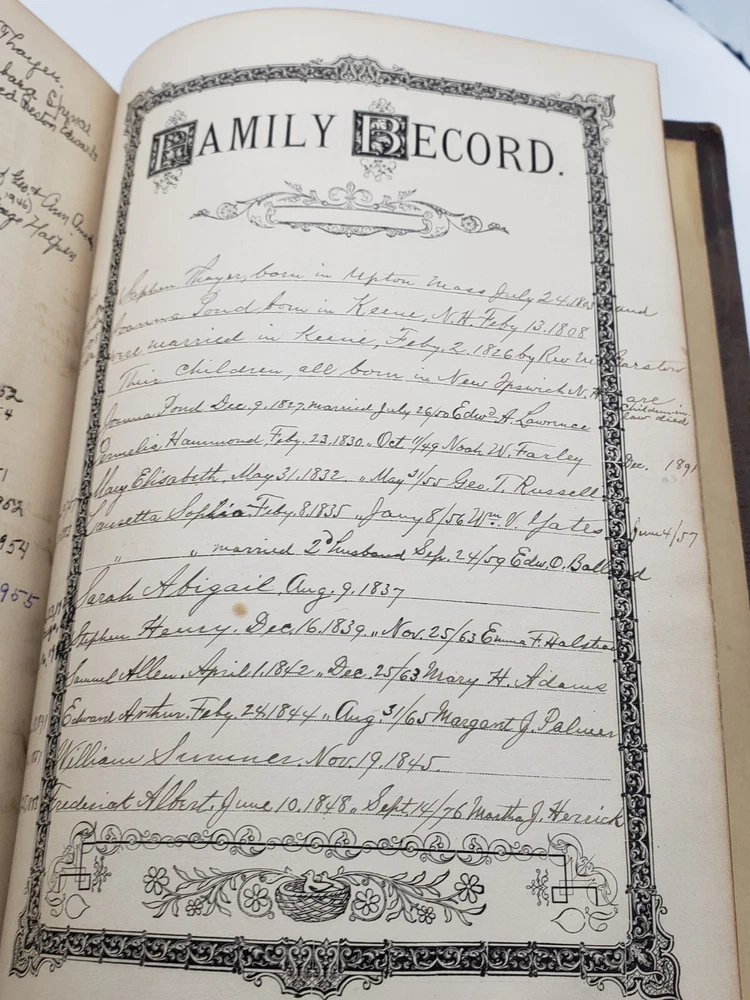 Thayer.
FAMILY RECORD.
Stephen Thayer, born in Upton Mass July 24. 1803 and
Joanna Pond, born in Keene, N.H. Feby 13. 1808
were married in Keene, Feby. 2, 1826 by Rev. Barstow
Their Children, all born in New Ipswich N.H. are
Children in
Law died
Joanna Pond Dec. 9, 1827, married July 26/50 Edwd A. Lawrence
Permelia Hammond, Feby. 23, 1830. " Oct 11/49 Noah W. Farley Dec. 1891
Mary Elisabeth, May 31, 1832. " May 31/55 Geo. T. Russell
Lauretta Sophia. Feby. 8. 1835 " Jany 8/56 Wm V. Yates June 4/57
" " married 2d husband Sep. 24/59 Edw. O. Ballard
Sarah Abigail, Aug. 9, 1837
Stephen Henry. Dec. 16, 1839 " Nov. 25/63 Emma F. Halstead
Samuel Allen. April 1. 1842 " Dec. 25/63 Mary H. Adams
Edward Arthur. Feby. 24, 1844 " Aug. 31/65 Margant J. Palmer
William Sumner. Nov. 19, 1845.
Frederick Albert. June 10. 1848 " Sept. 14/76 Martha J. Herrick
52
54
1952
1954
1955